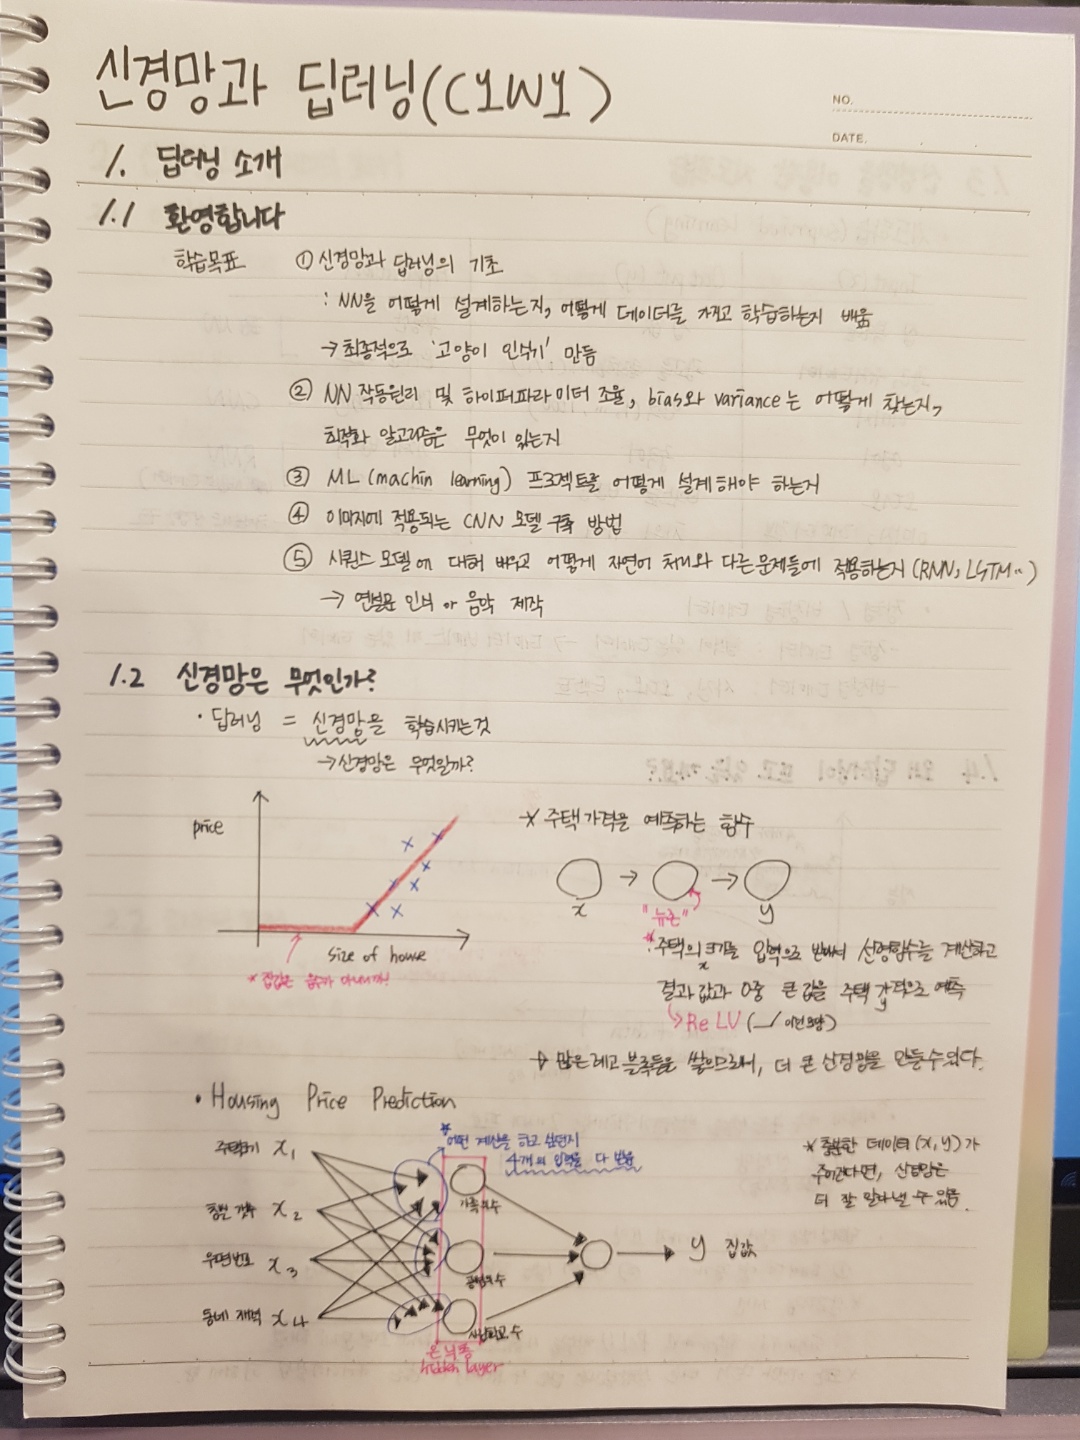 신경망과 딥러닝(C1W1)
NO.
DATE.
1. 딥러닝 소개
1.1 환영합니다
학습목표 ① 신경망과 딥러닝의 기초
: NN을 어떻게 설계하는지, 어떻게 데이터를 가지고 학습하는지 배움
→ 최종적으로 '고양이 인식기' 만듬
② NN 작동원리 및 하이퍼파라미터 조율, bias와 variance는 어떻게 찾는지,
최적화 알고리즘은 무엇이 있는지
③ ML (machin learning) 프로젝트를 어떻게 설계해야 하는지
④ 이미지에 적용되는 CNN 모델 구축 방법
⑤ 시퀀스 모델에 대해 배우고 어떻게 자연어 처리와 다른 문제들에 적용하는지 (RNN, LSTM..)
→ 음악 제작
1.2 신경망은 무엇인가?
· 딥러닝 = 신경망을 학습시키는 것
→ 신경망은 무엇일까?
price
size of house
* 집값은 음수가 아니니까!
* 주택가격을 예측하는 함수
→ →
x "뉴런" y
* 주택의 크기를 입력으로 받아서 선형함수를 계산하고
x
결과값과 0중 큰 값을 주택 가격으로 예측
y
→ ReLU ( 이런 모양)
→ 많은 레고 블록들을 쌓으므로써, 더 큰 신경망을 만들 수 있다.
· Housing Price Prediction
* 어떤 계산을 하고 싶던지
4개의 입력을 다 받음
주택크기 x1
침실 갯수 x2
우편번호 x3
동네 재력 x4
가족의 수
y 집값
은닉층
hidden layer
* 충분한 데이터 (x, y)가
주어진다면, 신경망은
더 잘 알아낼 수 있음.